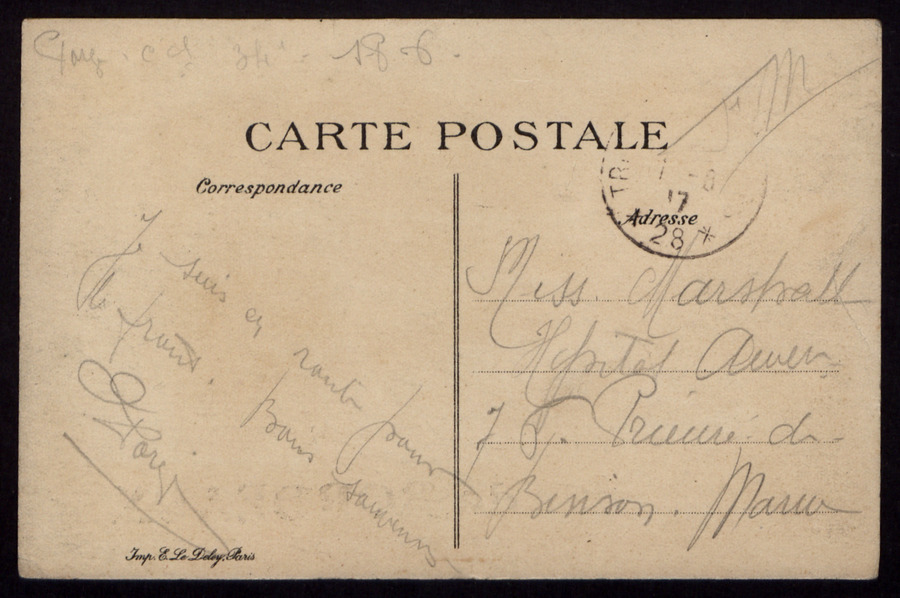 S.P. 6.
F M
CARTE POSTALE
Correspondance
Adresse
TR
17
28 *
Je suis en route pour
le front. Bons souvenirs
Miss. Marshall
Hôpital
7 Prieuré de
Binson. Marne
Imp. E. Le Deley, Paris